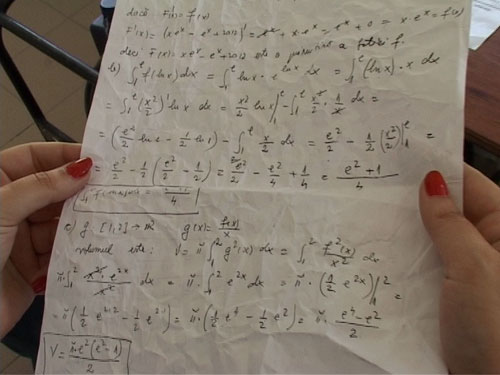 dacă F'(x) = f(x)
F'(x) = (xeˣ - eˣ + 2012)' = eˣ + x·eˣ - eˣ + 0 = x·eˣ = f(x)
deci F(x) = xeˣ - eˣ + 2012 este o primitivă a f.
b) ∫₁ᵉ f(ln x) dx = ∫₁ᵉ ln x · e^(ln x) dx = ∫₁ᵉ (ln x) · x dx
= ∫₁ᵉ (x²/2)' ln x dx = x²/2 ln x |₁ᵉ - ∫₁ᵉ x²/2 · 1/x dx =
= (e²/2 ln e - 1/2 ln 1) - ∫₁ᵉ x/2 dx = e²/2 - 1/2 (x²/2)|₁ᵉ =
= e²/2 - 1/2 (e²/2 - 1/2) = e²/2 - e²/4 + 1/4 = (e²+1)/4
c) g: [1,2] → g(x) = f(x)/x
volumul este: V = π ∫₁² g²(x) dx = ∫₁² f²(x)/x² dx
π ∫₁² x²·e²ˣ/x² dx = π · ∫₁² e²ˣ dx = π · (1/2 e²ˣ)|₁² =
= π (1/2 e²·² - 1/2 e²·¹) = π · (1/2 e⁴ - 1/2 e²) = π · (e⁴ - e²)/2
V = π·e²(e²-1)/2